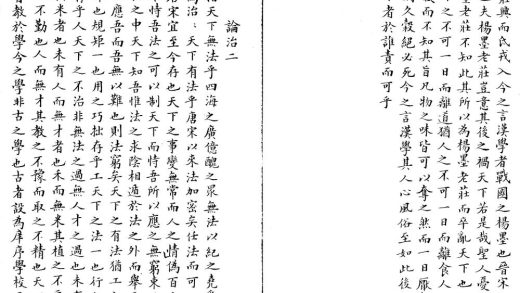 莊興而氐戎入今之言漢學者戰國之楊墨也晉宋
也夫楊墨老莊豈意其後之禍天下若是哉聖人憂
墨老莊不知此其所以為楊墨老莊而卒亂天下也
可一日而離道猶人之不可一日而離食人
而不知其旨凡物之味皆可以奪之然而一日厭
久穀絕必死今之言漢學其人心風俗至如此後
者於誰責而可乎
論治二
天下無法乎四海之廣億醜之眾無法以紀之堯
為治天下有法乎唐宋以來法加密矣仕法而可
宋宜至今存也天下之事變無常而人之情偽百
恃吾法之可以制天下而恃吾所以應之無窮東
之中天下知吾惟法之求陰相遁於法之外而舉
應吾而吾無以難也則法窮矣天下之有法猶工
也規矩一也用之巧拙存乎工天下之法一也行
乎人天下之不治非無法之過無人才之過也未
來者也未有人而無才者也未而無來其植之不
不勤也人而無才其教之不豫而取之不精也天
教於學今之學非古之學也古者設為庠序學校